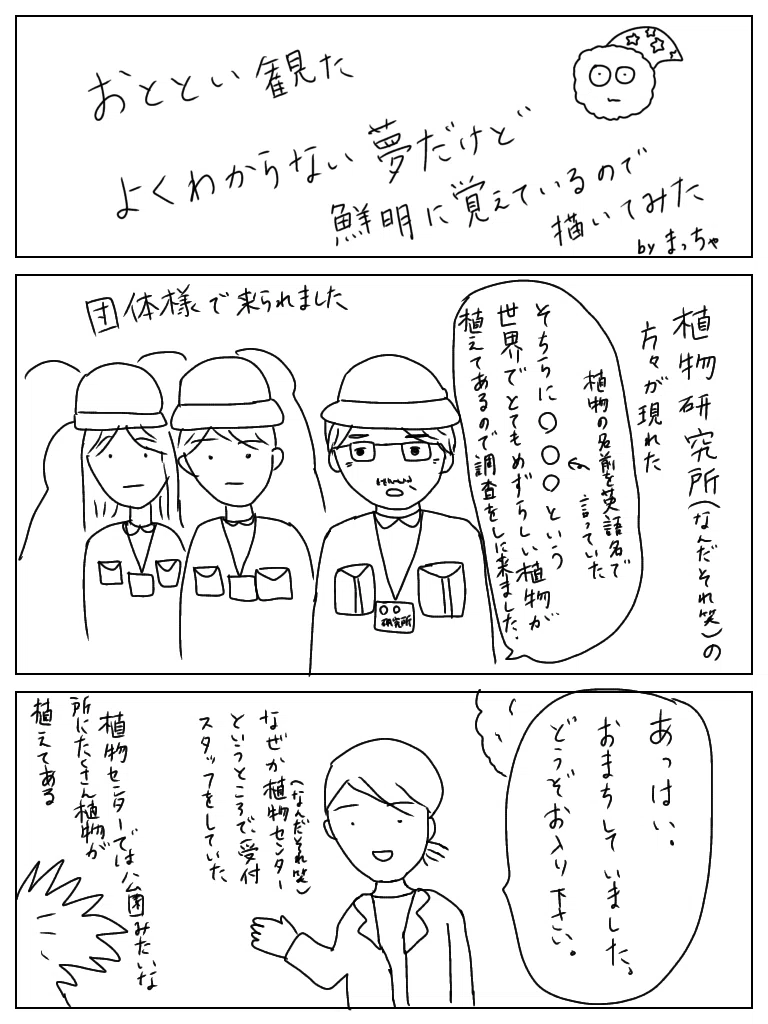 おととい観た
よくわからない夢だけど
鮮明に覚えているので
描いてみた
by まっちゃ
植物研究所(なんだそれ笑)の
方々が現れた
団体様で来られました
そちらに〇〇〇という
世界でとてもめずらしい植物が
植えてあるので調査をしに来ました.
植物の名前を英語名で
言っていた
〇〇
研究所
あっはい.
おまちしていました。
どうぞお入り下さい。
なぜか植物センター
(なんだそれ笑)
というところで、受付
スタッフをしていた
植物センターでは公園みたいな
所にたくさん植物が
植えてある